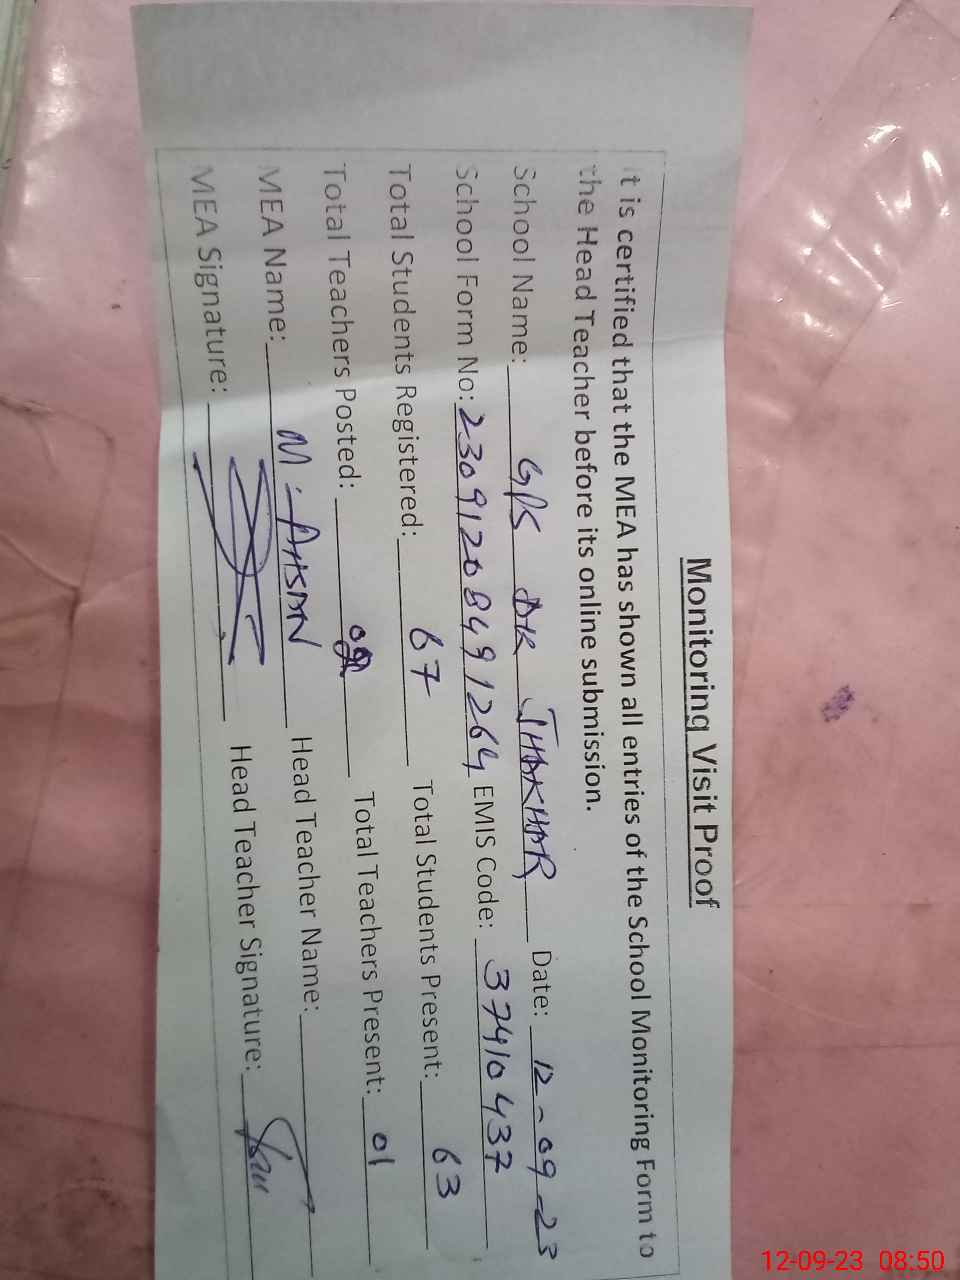 Monitoring Visit Proof
It is certified that the MEA has shown all entries of the School Monitoring Form to
the Head Teacher before its online submission.
School Name: GPS DK JHAKHAR Date: 12-09-23
School Form No: 23091208491264 EMIS Code: 37410437
Total Students Registered: 67 Total Students Present: 63
Total Teachers Posted: Total Teachers Present: 01
MEA Name: M. AHSAN Head Teacher Name:
MEA Signature: Head Teacher Signature:
12-09-23 08:50